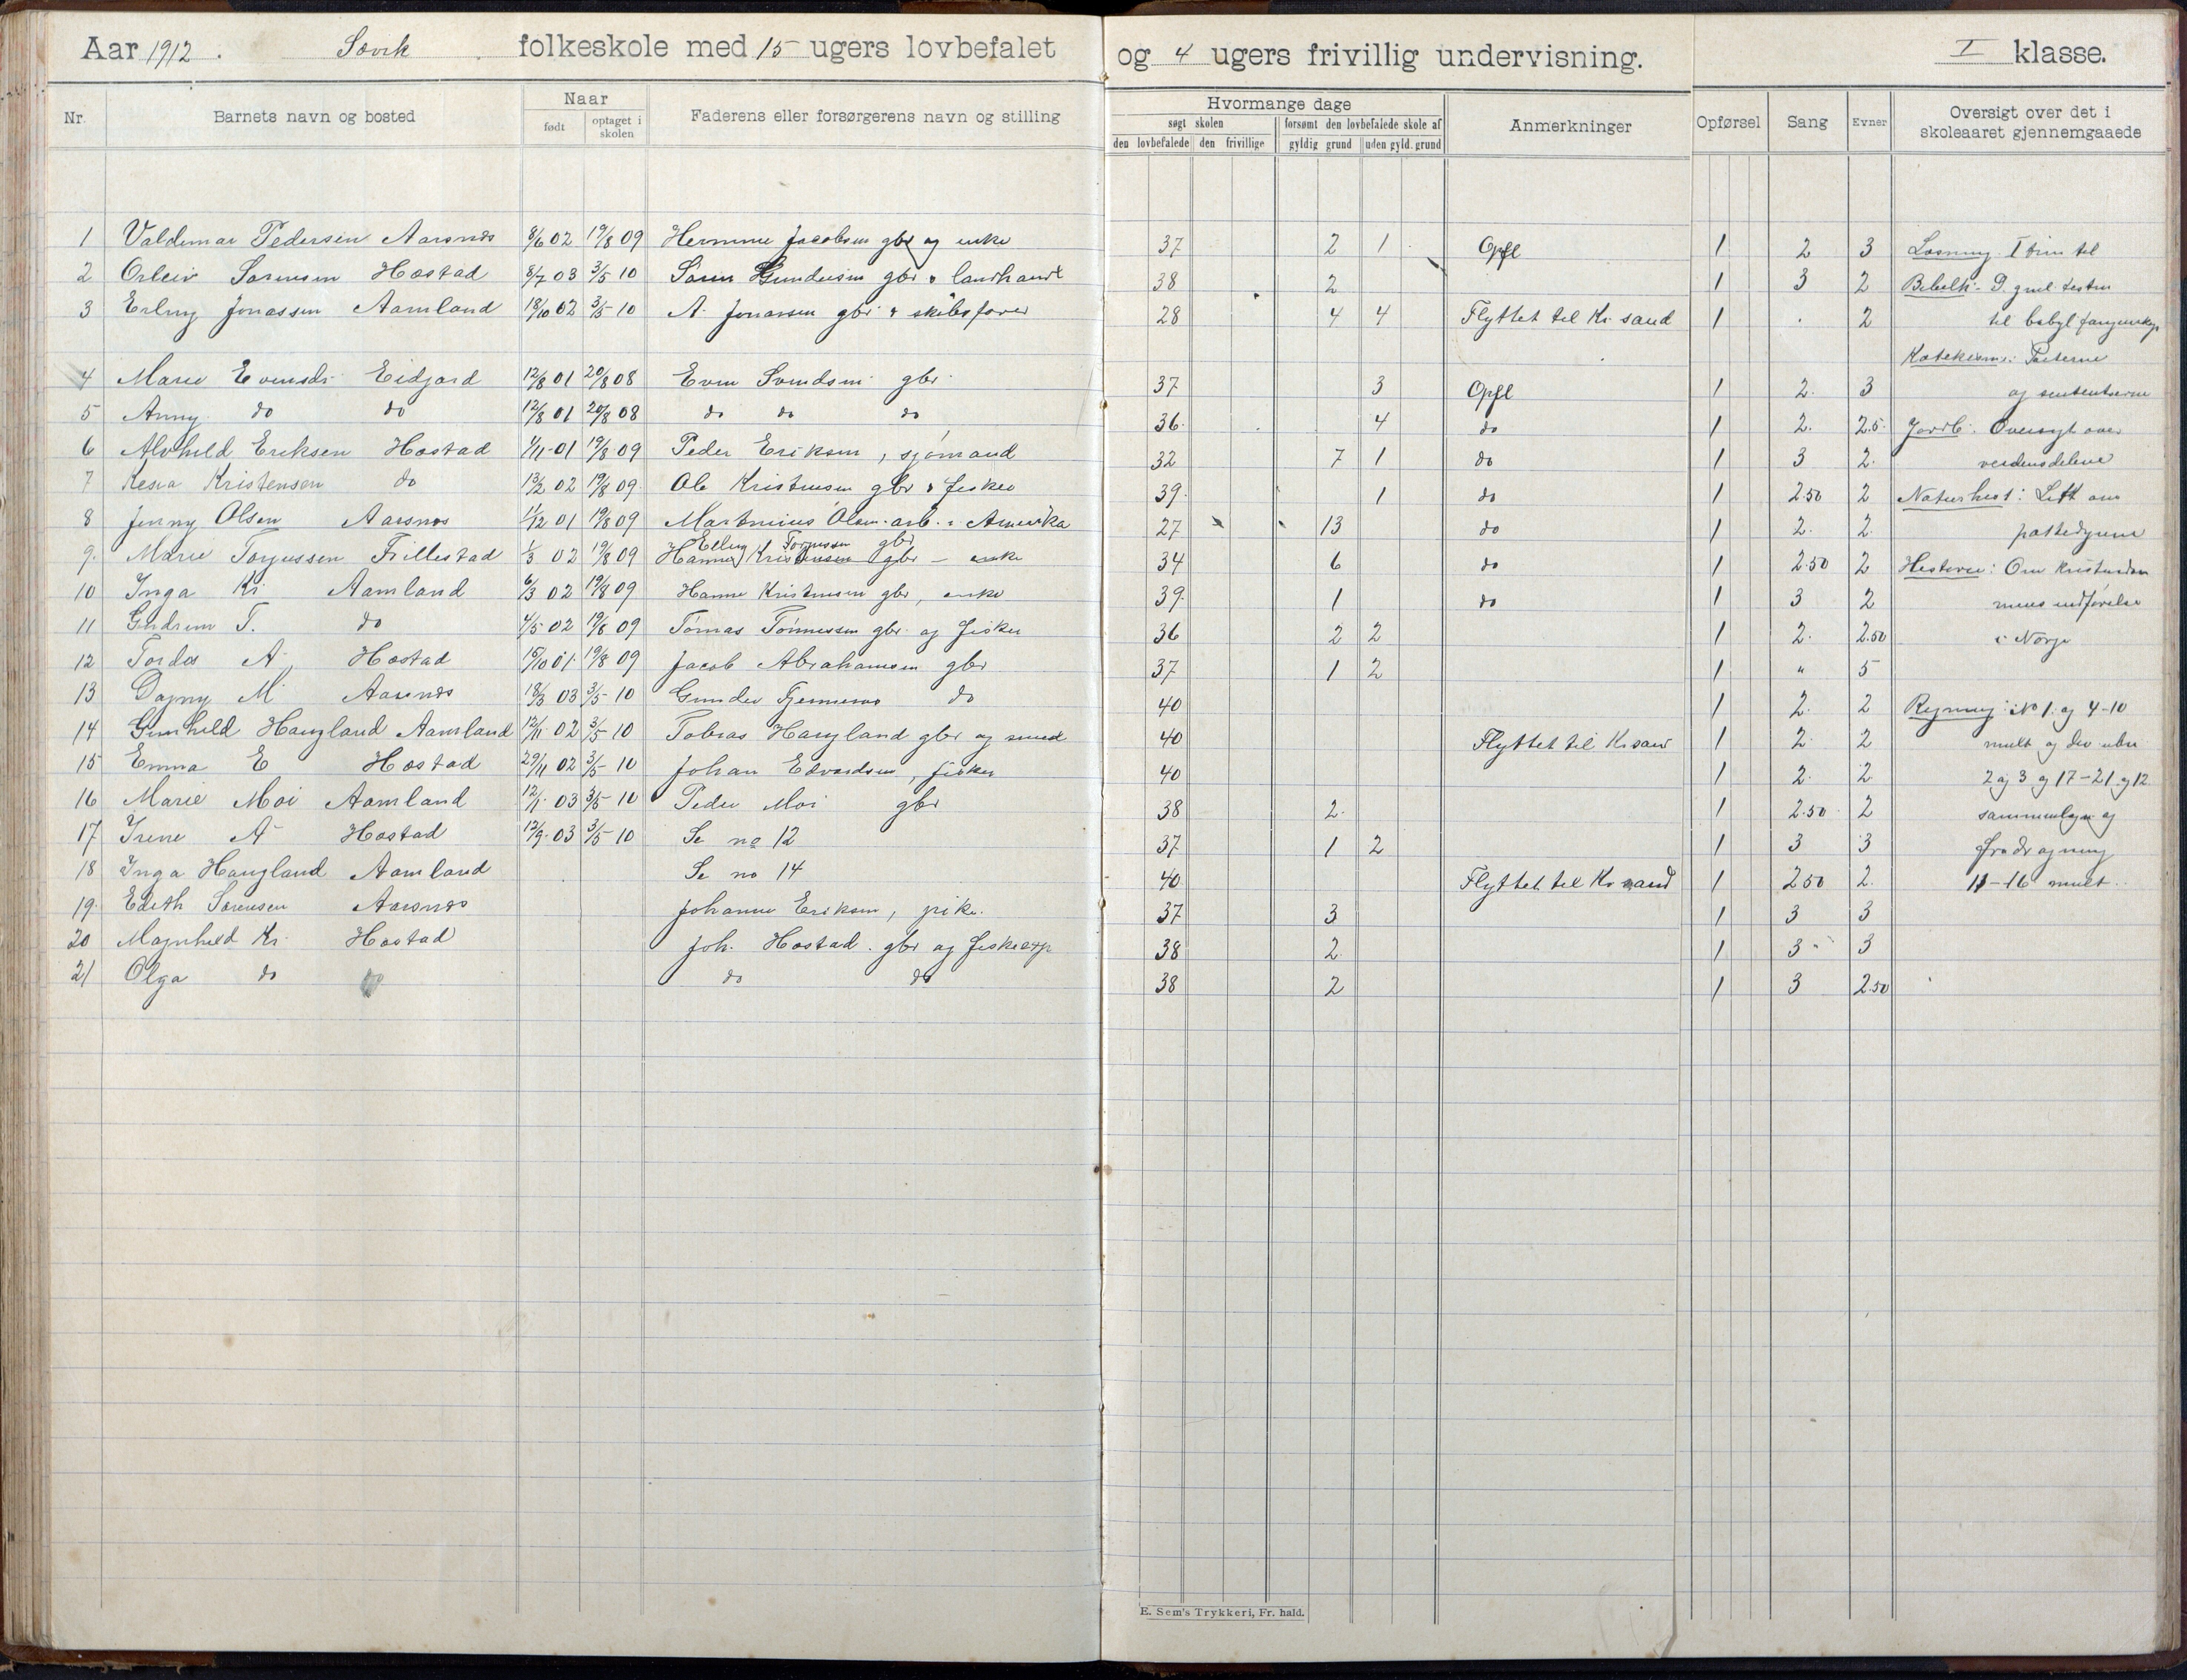 Aar 1912. Søvik folkeskole med 15 ugers lovbefalet og 4 ugers frivillig undervisning. I klasse.
Nr. Barnets navn og bosted Naar født optaget i skolen Faderens eller forsørgerens navn og stilling Hvormange dage søgt skolen den lovbefalede den frivillige forsømt den lovbefalede skole af gyldig grund uden gyld. grund Anmerkninger Opførsel Sang Evner Oversigt over det i skoleaaret gjennemgaaede
1 Valdemar Pedersen Aarsnes 8/6 02 19/8 09 Jacobsen gbr og enke 37 2 1 Opfl 1 2 3 Læsning I trin til
2 Orleiv Sørensen Høstad 8/7 03 3/5 10 Søren Gundersen gbr & landhandl 38 2 1 3 2 Bibelh.
3 Erling Jonassen Aamland 18/10 02 3/5 10 A. Jonassen gbr & skibsfører 28 4 4 Flyttet til Kr. sand 1 . 2 til babyl
Katekisme: Parterne
4 Marie Evensdr. Eidjord 12/8 01 20/8 08 Even Svendsen gbr. 37 3 Opfl 1 2. 3 og sententserne
5 Anny do do 12/8 01 20/8 08 do do do 36. 4 do 1 2. 2.5 Jordb. Oversigt over
6 Alvhild Eriksen Høstad 1/11 01 19/8 09 Peder Eriksen, sjømand 32 7 1 do 1 3 2. verdensdelene
7 Kesia Kristensen do 13/2 02 19/8 09. Ole Kristensen gbr & fisker 39. 1 do 1 2.50 2 Naturhist: Litt om
8 Jenny Olsen Aarsnes 11/12 01 19/8 09 Martinius Olsen. arb. i Amerika 27 13 do 1 2. 2. pattedyrene
9. Marie Torjussen Frillestad 1/3 02 19/8 09 Elling Torjussen gbr Hanne Kristensen gbr – enke 34 6 do 1 2.50 2 Historie: Om kristendom
10 Inga Kr. Aamland 6/3 02 19/8 09 Hanne Kristensen gbr, enke 39. 1 do 1 3 2 mens indførelse
11 Gudrun T. do 4/5 02 19/8 09 Tomas Tønnessen gbr. og fisker 36 2 2 1 2. 2.50 i Norge
12 Tordis A. Høstad 15/10 01 19/8 09 Jacob Abrahamsen gbr 37 1 2 1 " 5
13 Dagny M. Aarsnes 18/3 03 3/5 10 Gunder do 40 1 2. 2 Regning: No 1. og 4-10
14 Gunhild Haugland Aamland 12/11 02 3/5 10 Tobias Haugland gbr og smed 40 Flyttet til Kr.san 1 2. 2 mult og div
15 Emma E Høstad 29/11 02 3/5 10 Johan Edvardsen, fisker 40 1 2. 2. 2 og 3 og 17-21 og 12
16 Marie Moi Aamland 12/1 03 3/5 10 Peder Moi gbr 38 2. 1 2.50 2 sammenlegn og
17 Irene A Høstad 12/9 03 3/5 10 Se no 12 37 1 2 1 3 3 fradragning
18 Inga Haugland Aamland Se no 14 40 Flyttet til Kr sand 1 250 2. 11-16 mult.
19. Edith Sørensen Aarsnes Johanne Eriksen, pike. 37 3 1 3 3
20 Magnhild Kr. Høstad Joh. Høstad. gbr og 38 2. 1 3 3
21 Olga do do do do 38 2 1 3 2.50
E. Sem's Trykkeri, Fr. hald.